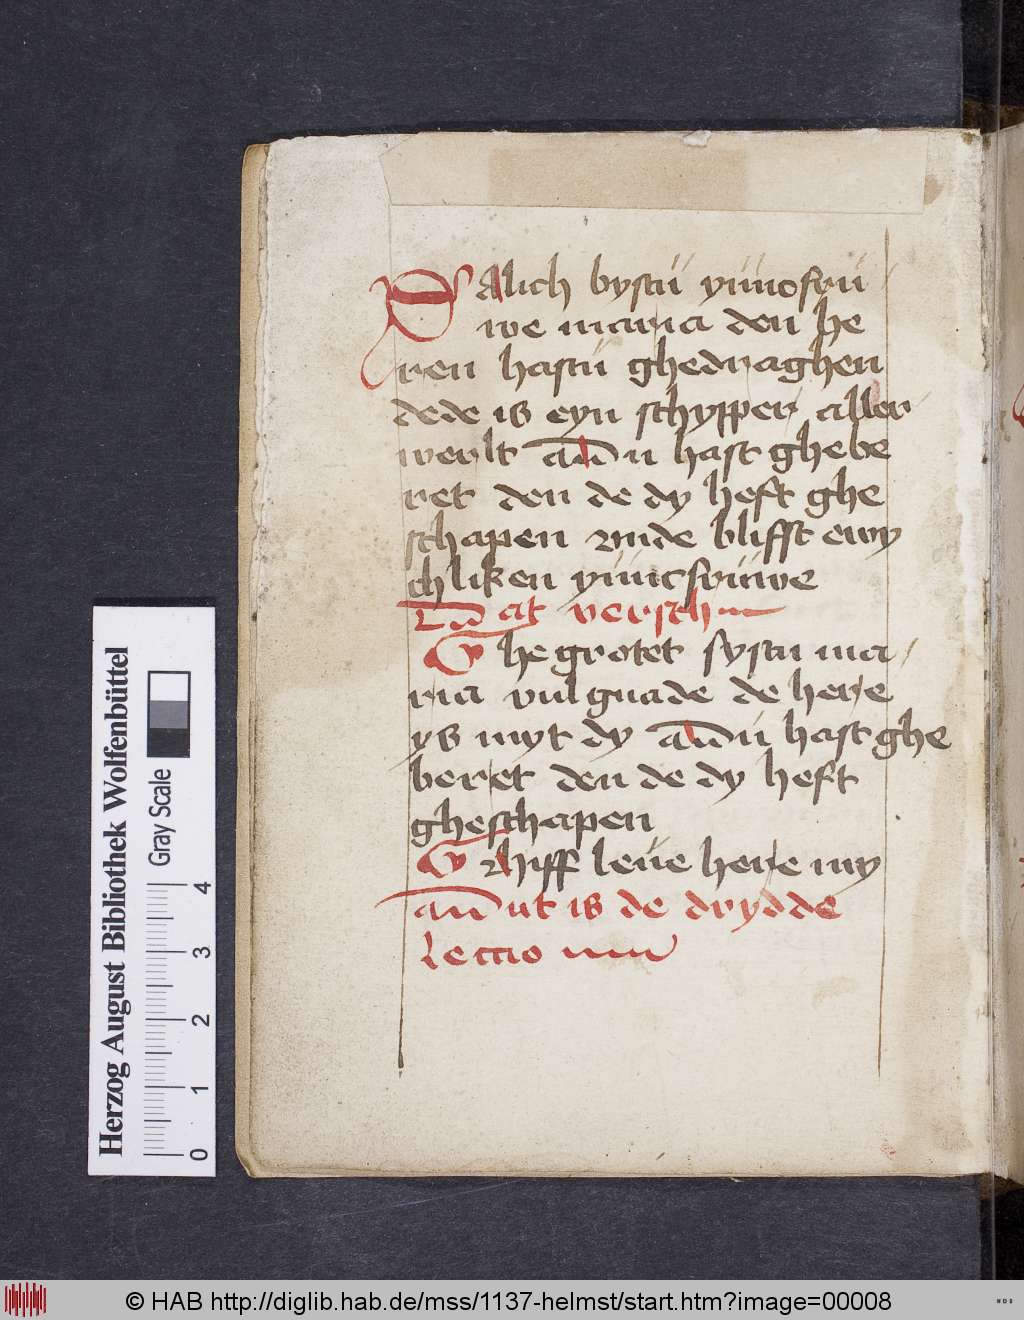 Salich bystu yuncfru
we maria den he
ren hastu ghedraghen
dede is eyn schypper aller
werlt au̅ u hast ghebe
ret den de dy heft ghe
schapen vnde blifft ewy
chliken yuncfruwe
versch
Ghegrotet systu ma
ria vul gnade de here
ys myt dy au̅ u hast ghe
beret den de dy heft
gheschapen
Ghiff leue here my
au̅ ut is de drydde
Leccio
Herzog August Bibliothek Wolfenbüttel
Gray Scale
0 1 2 3 4
© HAB http://diglib.hab.de/mss/1137-helmst/start.htm?image=00008